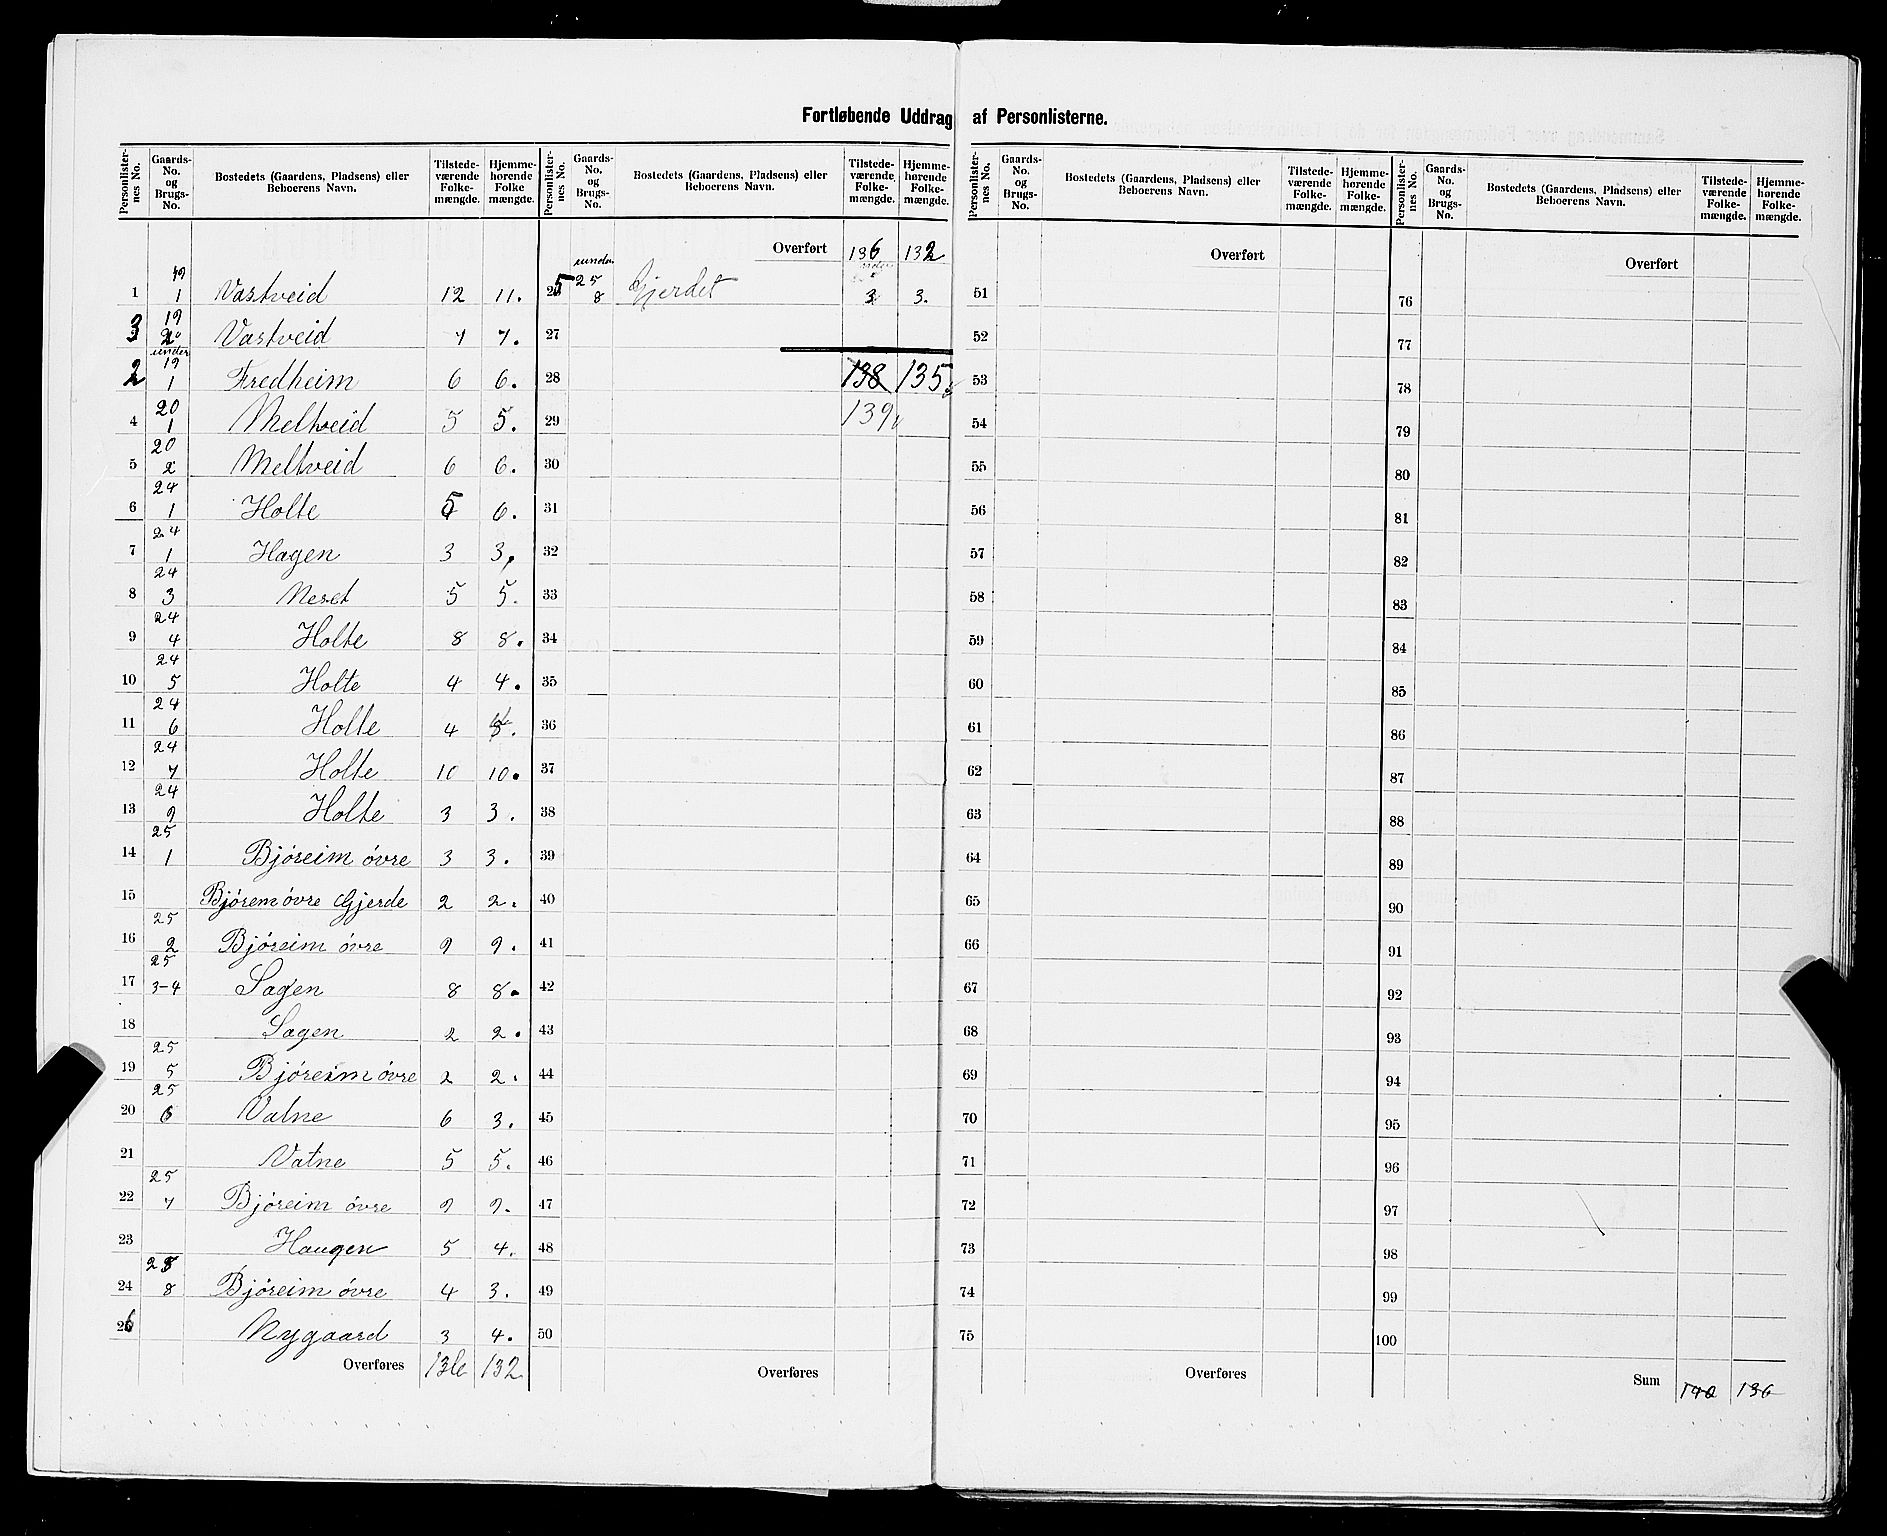 Fortløbende Uddrag af Personlisterne.
Personlisternes No. | Gaards-No. og Brugs-No. | Bostedets (Gaardens, Pladsens) eller Beboerens Navn. | Tilstedeværende Folkemængde. | Hjemmehørende Folkemængde.
1 | 19 1 | Vastveid | 12 | 11.
3 | 19 2 | Vastveid | 7 | 7.
2 | under 19 1 | Fredheim | 6 | 6.
4 | 20 1 | Meltveid | 5 | 5.
5 | 20 2 | Meltveid | 6 | 6.
6 | 24 1 | Holte | 5 | 6.
7 | 24 1 | Hagen | 3 | 3.
8 | 24 3 | Neset | 5 | 5.
9 | 24 4 | Holte | 8 | 8.
10 | 24 5 | Holte | 4 | 4.
11 | 24 6 | Holte | 4
12 | 24 7 | Holte | 10 | 10.
13 | 24 9 | Holte | 3 | 3.
14 | 25 1 | Bjóreim óvre | 3 | 3.
15 | Bjórem óvre Gjerde | 2 | 2.
16 | 25 2 | Bjóreim óvre | 9 | 9.
17 | 25 3-4 | Sagen | 8 | 8.
18 | Sagen | 2 | 2.
19 | 25 5 | Bjóreim óvre | 2 | 2.
20 | 25 6 | Vatne | 6 | 3.
21 | Vatne | 5 | 5.
22 | 25 7 | Bjóreim óvre | 9 | 9.
23 | Haugen | 5 | 4.
24 | 25 8 | Bjóreim óvre | 4 | 3.
26 | Nygaard | 3 | 4.
Overføres | 136 | 132
Personlisternes No. | Gaards-No. og Brugs-No. | Bostedets (Gaardens, Pladsens) eller Beboerens Navn. | Tilstedeværende Folkemængde. | Hjemmehørende Folkemængde.
Overført | 136 | 132
25 | under 25 8 | Gjerdet | 3 | 3.
27
28 | 138 | 135
29 | 139
30
31
32
33
34
35
36
37
38
39
40
41
42
43
44
45
46
47
48
49
50
Overføres
Personlisternes No. | Gaards-No. og Brugs-No. | Bostedets (Gaardens, Pladsens) eller Beboerens Navn. | Tilstedeværende Folkemængde. | Hjemmehørende Folkemængde.
Overført
51
52
53
54
55
56
57
58
59
60
61
62
63
64
65
66
67
68
69
70
71
72
73
74
75
Overføres
Personlisternes No. | Gaards-No. og Brugs-No. | Bostedets (Gaardens, Pladsens) eller Beboerens Navn. | Tilstedeværende Folkemængde. | Hjemmehørende Folkemængde.
Overført
76
77
78
79
80
81
82
83
84
85
86
87
88
89
90
91
92
93
94
95
96
97
98
99
100
Sum | 140 | 136